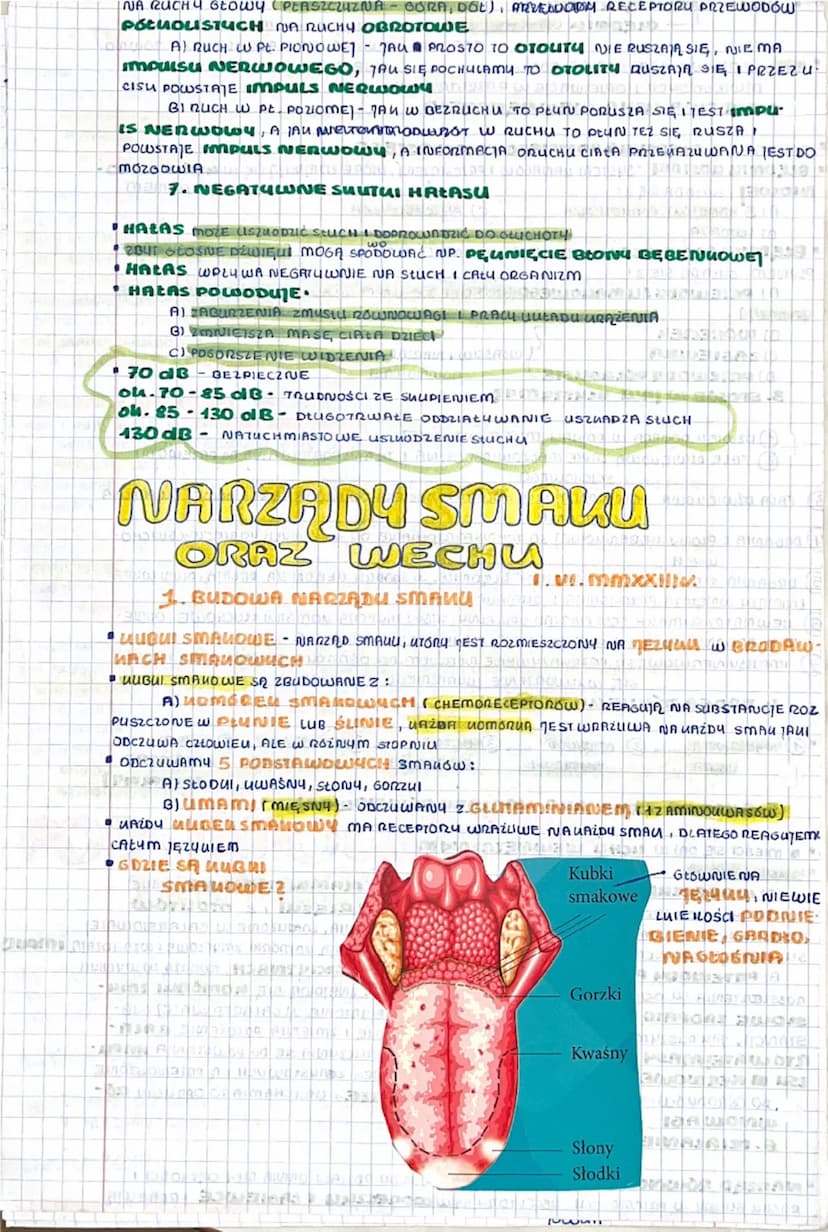 NA RUCHY GŁOWY (PŁASZCZYZNA - GÓRA, DÓŁ), A RECEPTORY PRZEWODÓW
PÓŁKOLISTYCH NA RUCHY OBROTOWE
A) RUCH W PŁ. PIONOWEJ - JAK PROSTO TO OTOLITY NIE RUSZAJĄ SIĘ, NIE MA
IMPULSU NERWOWEGO, JAK SIĘ POCHYLAMY TO OTOLITY RUSZAJĄ SIĘ I PRZEZ U-
CISK POWSTAJE IMPULS NERWOWY
B) RUCH W PŁ. POZIOMEJ - JAK W BEZRUCHU, TO PŁYN PORUSZA SIĘ I JEST IMPU-
LS NERWOWY, A JAK W RUCHU TO PŁYN TEŻ SIĘ RUSZA I
POWSTAJE IMPULS NERWOWY, A INFORMACJA O RUCHU CIAŁA PRZEKAZYWANA JEST DO
MÓZGOWIA
7. NEGATYWNE SKUTKI HAŁASU
• HAŁAS MOŻE USZKODZIĆ SŁUCH I DOPROWADZIĆ DO GŁUCHOTY
• ZBYT GŁOŚNE DŹWIĘKI MOGĄ SPOWODOWAĆ NP. PĘKNIĘCIE BŁONY BĘBENKOWEJ
• HAŁAS WPŁYWA NEGATYWNIE NA SŁUCH I CAŁY ORGANIZM
• HAŁAS POWODUJE:
A) ZABURZENIA ZMYSŁU RÓWNOWAGI I PRACY UKŁADU KRĄŻENIA
B) ZMNIEJSZA MASĘ CIAŁA DZIECI
C) POGORSZENIE WIDZENIA
• 70 dB - BEZPIECZNE
OK. 70 - 85 dB - TRUDNOŚCI ZE SKUPIENIEM
OK. 85 - 130 dB - DŁUGOTRWAŁE ODDZIAŁYWANIE USZKADZA SŁUCH
130 dB - NATYCHMIASTOWE USZKODZENIE SŁUCHU
NARZĄDY SMAKU
ORAZ WĘCHU
1. VI. MMXXIIIV.
1. BUDOWA NARZĄDU SMAKU
• KUBKI SMAKOWE - NARZĄD SMAKU, KTÓRY JEST ROZMIESZCZONY NA JĘZYKU W BRODAW-
KACH SMAKOWYCH
• KUBKI SMAKOWE SĄ ZBUDOWANE Z:
A) KOMÓREK SMAKOWYCH (CHEMORECEPTORÓW) - REAGUJĄ NA SUBSTANCJE ROZ
PUSZCZONE W PŁYNIE LUB ŚLINIE, KAŻDA KOMÓRKA JEST WRAŻLIWA NA KAŻDY SMAK JAKI
ODCZUWA CZŁOWIEK, ALE W RÓŻNYM STOPNIU
• ODCZUWAMY 5 PODSTAWOWYCH SMAKÓW:
A) SŁODKI, KWAŚNY, SŁONY, GORZKI
B) UMAMI (MIĘSNY) - ODCZUWANY Z GLUTAMINIANEM (1 Z AMINOKWASÓW)
• KAŻDY KUBEK SMAKOWY MA RECEPTORY WRAŻLIWE NA KAŻDY SMAK, DLATEGO REAGUJEMY
CAŁYM JĘZYKIEM
• GDZIE SĄ KUBKI
SMAKOWE?
Kubki
smakowe
GŁÓWNIE NA
JĘZYKU, NIEWIE
LKIE ILOŚCI PODNIE-
BIENIE, GARDŁO,
NAGŁOŚNIA
Gorzki
Kwaśny
Słony
Słodki